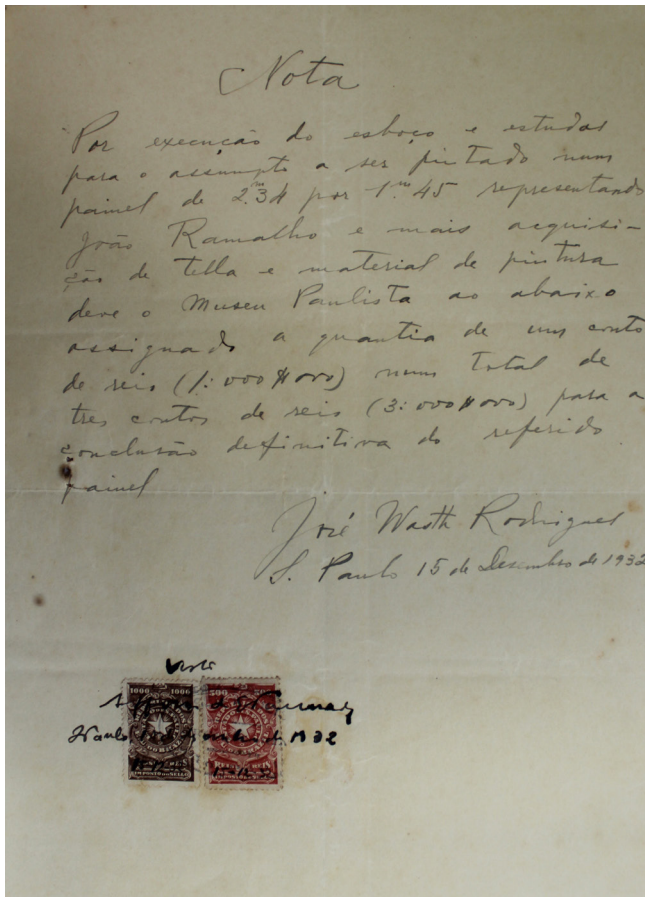 Nota
Por execução do esboço e estudos
para o assumpto a ser pintado num
painel de 2.m34 por 1.m45 representando
João Ramalho e mais acquisi-
ção de tella e material de pintura
deve o Museu Paulista ao abaixo
assignado a quantia de um conto
de reis (1:000$000) num total de
tres contos de reis (3:000$000) para a
conclusão definitiva do referido
painel
José Wasth Rodrigues
S. Paulo 15 de Desembro de 1932
Visto
1000 1000 300 300
S Paulo 1932
REIS REIS
IMPOSTO DO SELLO IMPOSTO DO SELLO